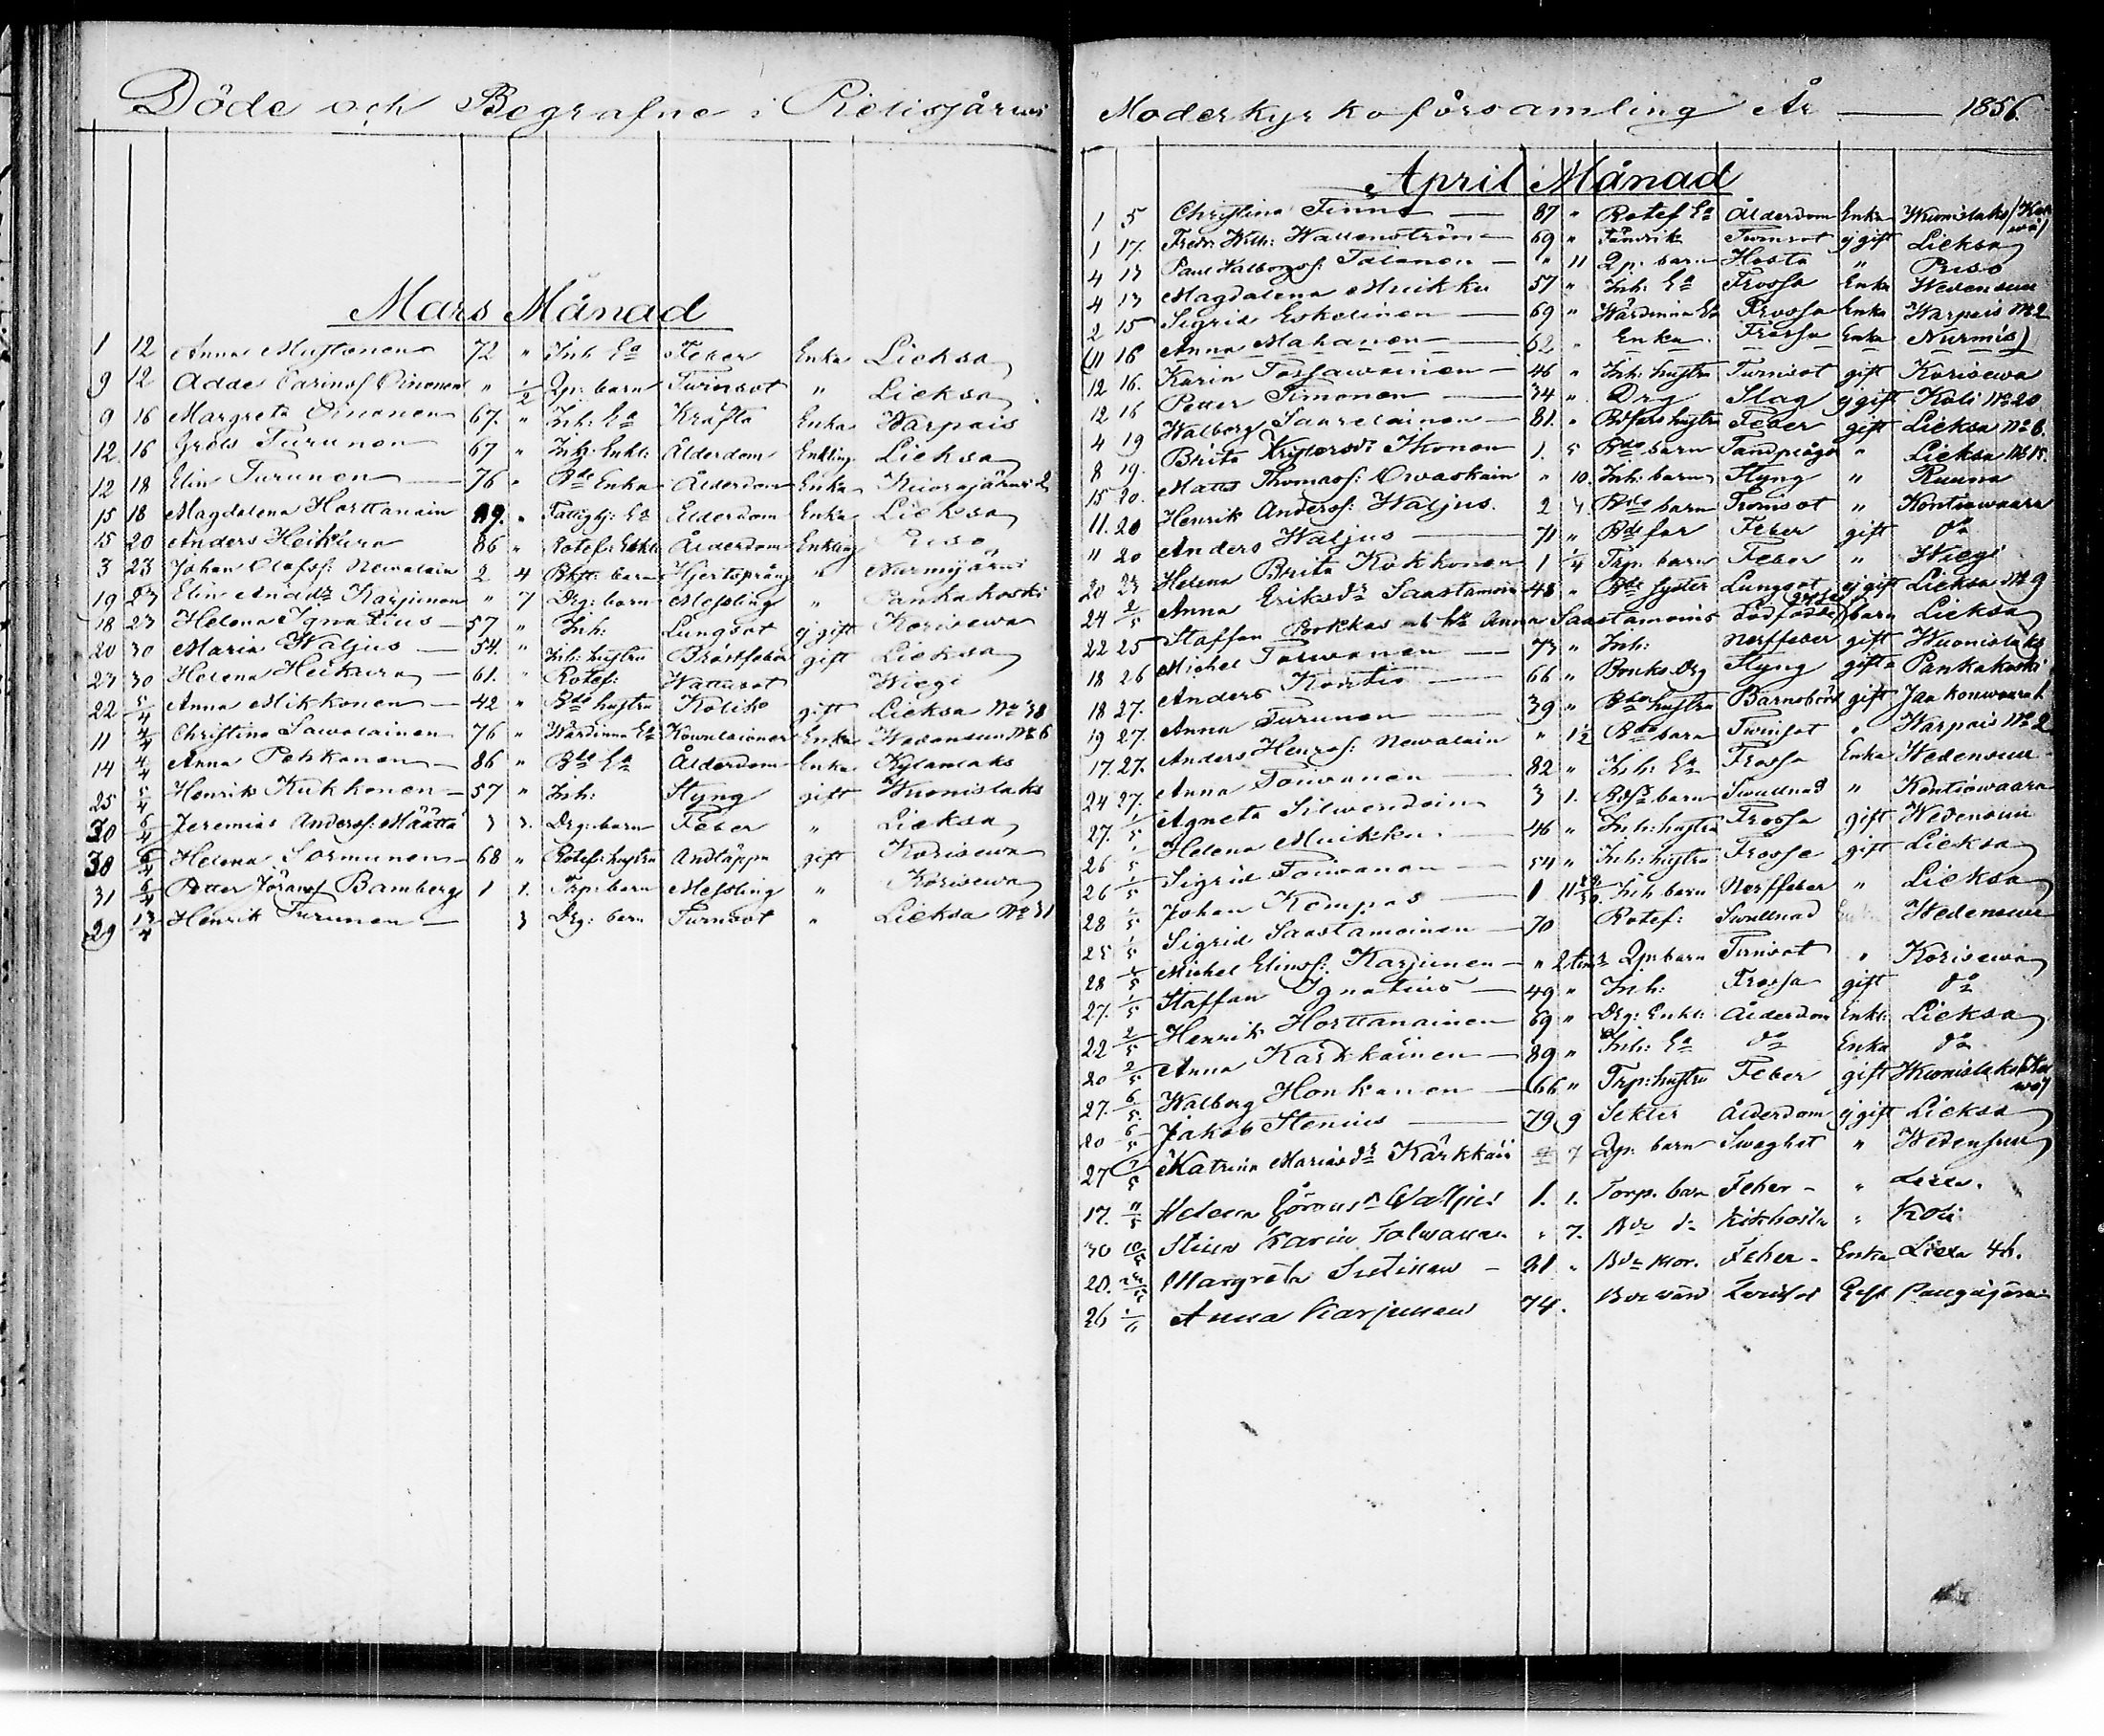 Döde och Begrafne i Pielisjärvi
Mars Månad
1 12 Anna Mustonen 72 " Inh: Ea Feber Enka Lieksa
9 12 Adde Carinsf. Pinonen " 1/2 Qp: barn Twinsot " Lieksa
9 16 Margreta Pinonen 67. " Inh: Ea Kräfta Enka Warpais
12. 16 Turunen 67 " Inh: Enkl: Ålderdom Enkling Lieksa
12 18 Elin Turunen 76 " Bde Enka Ålderdom Enka
15 18 Magdalena Horttanain " Fattighj: Ea Ålderdom Enka Lieksa
15 20 Anders Heikura 86 " Rotef: Enkl Ålderdom Enkling
3 23 Johan Olofsf: Newalain 2 4 barn Hjertsprång " Nurmijärvi
19 23 Elin Karjunen " 7 Drg: barn Messling " Pankakoski
18 23 Helena Ignatius 57 " Inh: Lungsot ej gift Korisewa
20 30 Maria Waljus 54. " Inh: hustru Bröstfeber gift Lieksa
23 30 Helena Heikura 61. " Rotef: Wattusot Wiegi
22 5/4 Anna Mikkonen 42 " Bde hustru Kolik gift Lieksa No 38
11 4/4 Christina Sawolainen 76 " Wärdinna Ea Enka Wedensuu No 6
14 4/4 Anna Pehkonen 86 " Bde Ea Ålderdom Enka Kylänlaks
25 5/4 Henrik Kukkonen 57 " Inh: Styng gift Wuonislaks
30 6/4 Jeremias Andersf: Määttä 3 3. Drg: barn Feber " Lieksa
30 6/4 Helena Sormunen 68 " Rotef: hustru Andtäppa gift Korisewa
31 6/4 Petter Göransf Bamberg 1 1. Trp: barn Messling " Korisewa
29 13/4 Henrik Turunen 3 Drg: barn Turnsot " Lieksa No 31
Moderkyrkoförsamling År 1856.
April Månad
1 5 Christina Finne 87 " Rotef Ea Ålderdom Enka Wuonislaks
1 17. Fredr. Wilh: Wallenström 69 " Fändrik Twinsot ej gift Lieksa
4 13 Paul Walborgsf: Tolonen " 11 Qp: barn Hosta "
4 13 Magdalena Muikku 57 " Inh: Ea Frossa Enka Wedensuu
2 15 Sigrid Eskelinen 69 " Wärdinna Ea Frossa Enka Warpais No 2
11 16 Anna Mahanen 62 " Enka. Frossa Enka Nurmis
12 16. Karin Tossawainen 46 " Inh: hustru Turnsot gift Korisewa
12 16 Petter Timonen 34 " Drg Slag ej gift Koli No 20
4 19 Walborg Saarelainen 81. " hustru Feber gift Lieksa No 6.
8 19. Brita Ikonen 1. 5 Bde barn Tandplåga " Lieksa No 15.
15 20. Matts Thomasf: Orvaskain " 10. Inh: barn Styng " Ruuna
11. 20 Henrik Andersf: Waljus. 2 4 Bde barn Twinsot " Kontiowaara
" 20 Anders Waljus 71 " Bde far Feber gift do
20 23 Helena Brita Kokkonen 1 1/4 Trp: barn Feber " Wiegi
24 2/5 Anna Eriksdr Saastamoin 48 " Bde syster Lungsot ej gift Lieksa No 9
22 25 Staffan Anna Saastamoinis Dödfödde barn Lieksa
18 26 Michel Toiwonen 73 " Inh: Nerffeber gift Wuonislaks
18 27. Anders Kontio 66 " Bruks Drg Styng gift Pankakoski
19 27. Anna Turunen 39 " Bde hustru Barnsbörd gift
17. 27. Anders Henrsf: Newalain " 1 1/2 Bde barn Twinsot " Warpais No 2
24 27. Anna Toiwonen 82 " Inh: Ea Frossa Enka Wedensuu
27. 1/5 Agneta Silwendoin 3 1. barn Swullnad " Kontiowaara
26 1/5 Helena Muikku 46 " Inh: hustru Frossa gift Wedensuu
26 1/5 Sigrid Toiwonen 54 " Inh: hustru Frossa gift Lieksa
28 1/5 Johan Kempas 1 11 Inh barn Nerffeber " Lieksa
25 1/5 Sigrid Saastamoinen 70 Rotef: Swullnad Wedensuu
28 1/5 Michel Elinsf: Karjunen " 2 tim: Qp: barn Turnsot " Korisewa
27. 1/5 Staffan Ignatius 49 " Inh: Frossa gift do
22 2/5 Henrik Horttanainen 69 " Drg: Enkl: Ålderdom Enkl: Lieksa
20 2/5 Anna Karkkainen 89 " Inh: Ea do Enka do
27. 6/5. Walborg Honkanen 66 " Trp: hustru Feber gift Wuonislaks
20 6/5 Jakob Stenius 79 9 Ålderdom ej gift Lieksa
27 7/5 Katrina Mariasdr Kärkkäi 7 Qp: barn Swaghet " Wedensuu
17. 11/5 Helena Göransdr Waljus 1. 1. Torp. barn Feber "
30 10/5 Stina Karin " 7. Bde do Kikhosta " Koli
20. Margreta 21 " Bde mor. Feber Enka 46.
26 1/6 Anna Karjunen 74. Gift